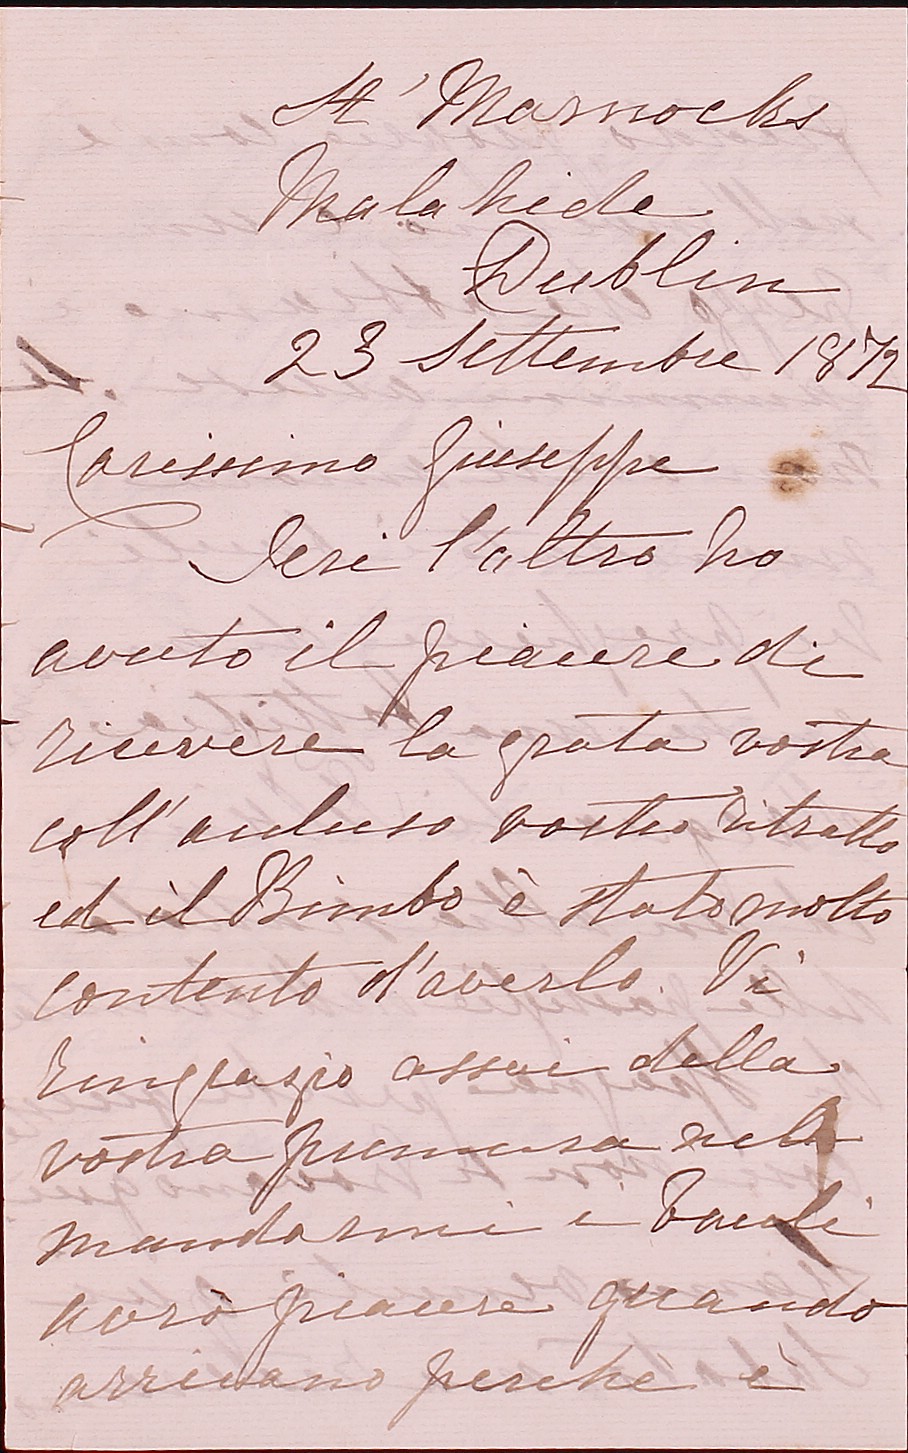 St' Marnocks
Malahide
Dublin
23 Settembre 1872
Carissimo Giuseppe
Ieri l'altro ho
avuto il piacere di
ricevere la grata vostra
coll'accluso vostro ritratto
ed il Bimbo è stato molto
contento d'averlo. Vi
ringrazio assai della
vostra premura nel
mandarmi i
avrò piacere quando
arrivano perche è